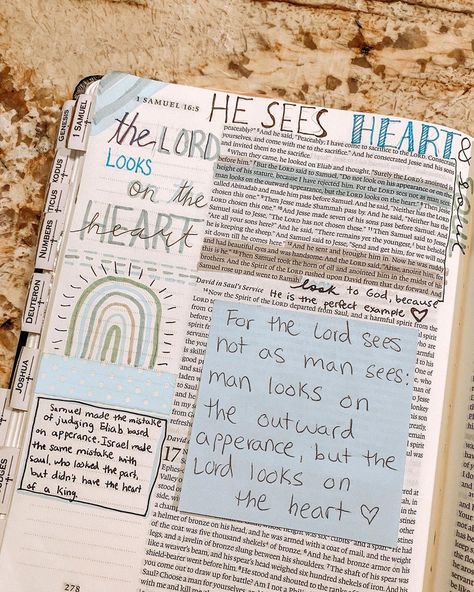 1 SAMUEL 16:5
HE SEES HEART &
Soul
the LORD
LOOKS
on the
HEART
GENESIS
EXODUS
NUMBERS
JOSHUA
1 SAMUEL
peaceably?" And he said, "Peaceably; I have come to sacrifice to the LORD. Consecrate
yourselves, and come with me to the sacrifice." And he consecrated Jesse and his sons
and invited them to the sacrifice.
When they came, he looked on Eliab and thought, "Surely the LORD's anointed is
before him." But the LORD said to Samuel, "Do not look on his appearance or on the
height of his stature, because I have rejected him. For the LORD sees not as man sees:
man looks on the outward appearance, but the LORD looks on the heart." Then Jesse
called Abinadab and made him pass before Samuel. And he said, "Neither has the
LORD chosen this one." Then Jesse made Shammah pass by. And he said, "Neither has the
LORD chosen this one." And Jesse made seven of his sons pass before Samuel. And
Samuel said to Jesse, "The LORD has not chosen these." Then Samuel said to Jesse,
"Are all your sons here?" And he said, "There remains yet the youngest, but behold,
he is keeping the sheep." And Samuel said to Jesse, "Send and get him, for we will not
sit down till he comes here." And he sent and brought him in. Now he was ruddy
and had beautiful eyes and was handsome. And the LORD said, "Arise, anoint him, for
this is he." Then Samuel took the horn of oil and anointed him in the midst of his
brothers. And the Spirit of the LORD rushed upon David from that day forward. And
Samuel rose up and went to Ramah.
look to God, because
He is the perfect example ♡
David in Saul's Service
Now the Spirit of the LORD departed from Saul, and a harmful spirit from the
For the Lord sees
not as man sees:
man looks on
the outward
apperance, but the
Lord looks on
the heart ♡
Samuel made the mistake
of judging Eliab based
on apperance. Israel made
the same mistake with
Saul, who looked the part,
but didn't have the heart
of a King.
David
17
a helmet of bronze on his head, and he was armed with a coat of mail, and the weight
of the coat was five thousand shekels of bronze. And he had bronze armor on his
legs, and a javelin of bronze slung between his shoulders. The shaft of his spear was
like a weaver's beam, and his spear's head weighed six hundred shekels of iron. And his
shield-bearer went before him. He stood and shouted to the ranks of Israel, "Why have
you come out to draw up for battle? Am I not a
Saul? Choose a man for yourselves, and
with me and kill me
278